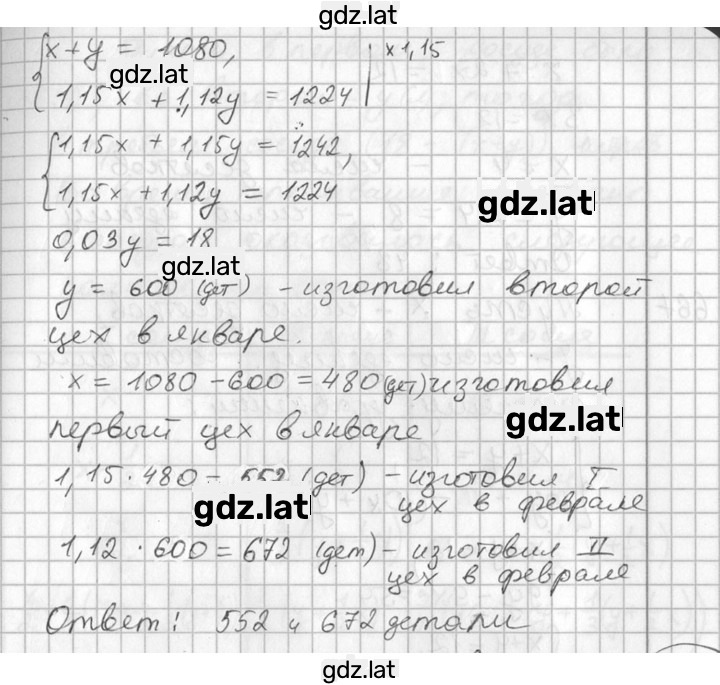 gdz.lat
x + y = 1080, | x 1,15
gdz.lat
1,15x + 1,12y = 1224
1,15x + 1,15y = 1242,
1,15x + 1,12y = 1224
gdz.lat
0,03y = 18
gdz.lat
y = 600 (дет) - изготовил второй
цех в январе.
x = 1080 - 600 = 480 (дет) изготовил
gdz.lat
первый цех в январе
1,15 · 480 = 552 (дет) - изготовил I
цех в феврале
gdz.lat
1,12 · 600 = 672 (дет) - изготовил II
цех в феврале
Ответ: 552 и 672 детали
gdz.lat